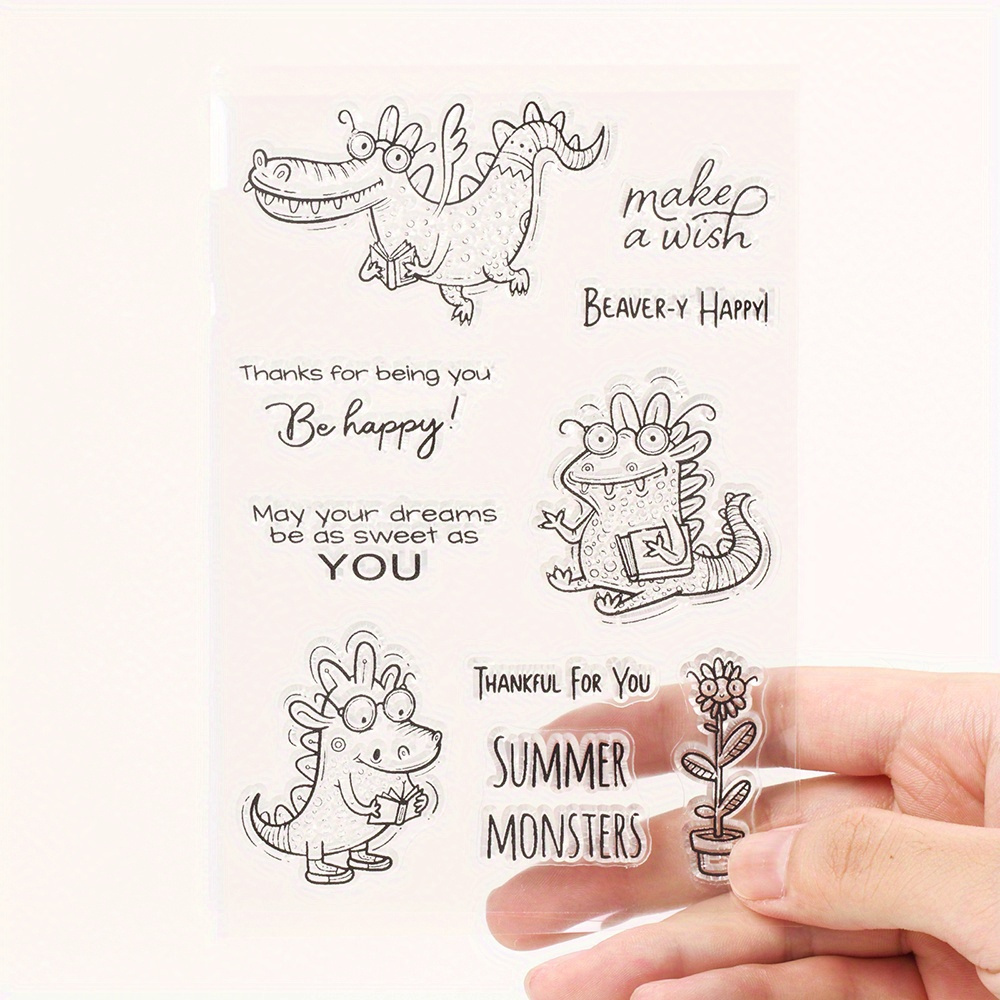 make
a wish
BEAVER-Y HAPPY!
Thanks for being you
Be happy!
May your dreams
be as sweet as
YOU
THANKFUL FOR YOU
SUMMER
MONSTERS